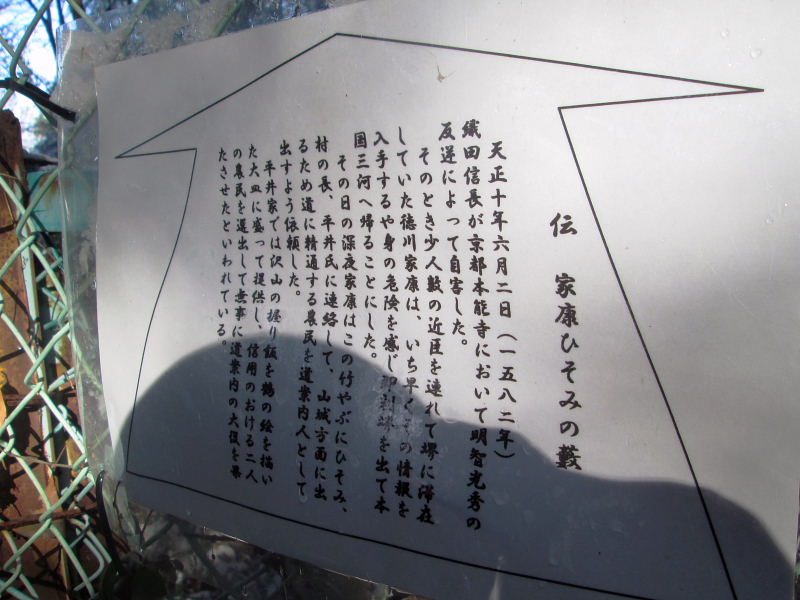 伝　家康ひそみの藪
天正十年六月二日（一五八二年）
織田信長が京都本能寺において明智光秀の
反逆によって自害した。
そのとき少人数の近臣を連れて堺に滞在
していた徳川家康は、いち早くその情報を
入手するや身の危険を感じ即刻堺を出て本
国三河へ帰ることにした。
その日の深夜家康はこの竹やぶにひそみ、
村の長、平井氏に連絡して、山城方面に出
るため道に精通する農民を道案内人として
出すよう依頼した。
平井家では沢山の握り飯を鶴の絵を描い
た大皿に盛って提供し、信用のおける二人
の農民を選出して無事に道案内の大役を果
たさせたといわれている。